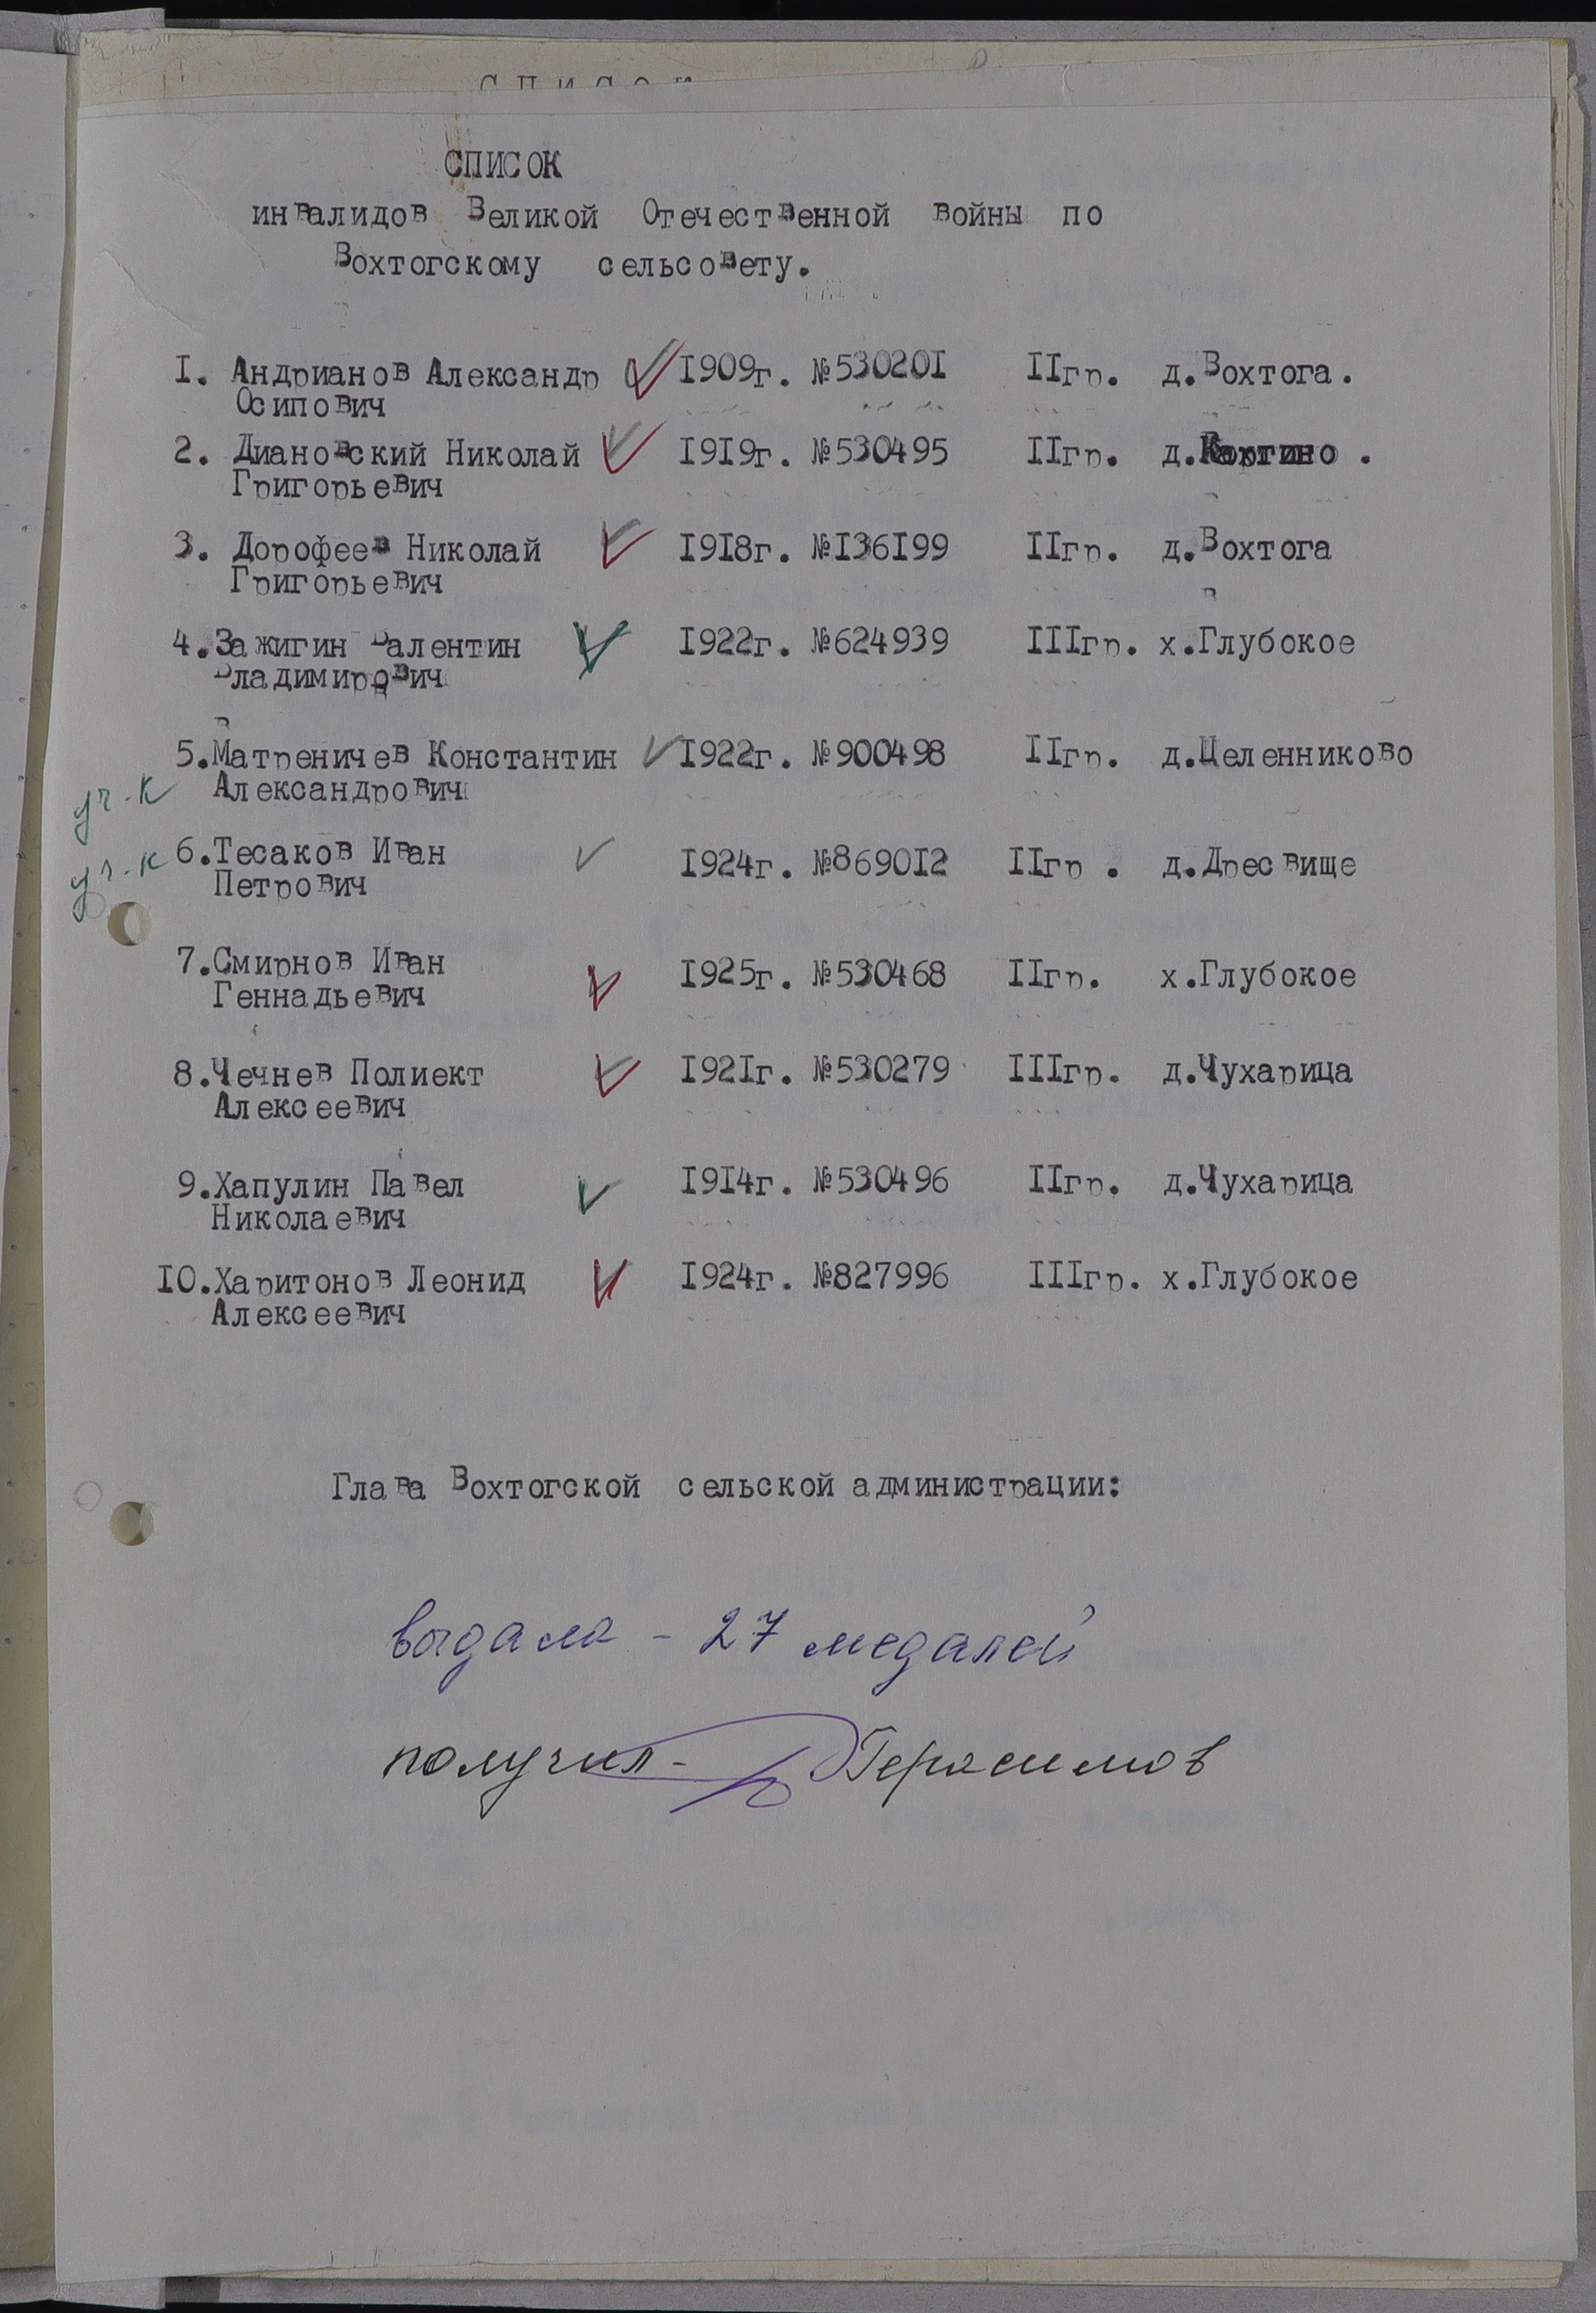 СПИСОК
СПИСОК
инвалидов Великой Отечественной войны по
Вохтогскому сельсовету.
I. Андрианов Александр I909г. №53020I IIгр. д.Вохтога.
Осипович
2. Диановский Николай I9I9г. №530495 IIгр. д. .
Григорьевич
3. Дорофеев Николай I9I8г. №I36I99 IIгр. д.Вохтога
Григорьевич
4.Зажигин Валентин I922г. №624939 IIIгр. х.Глубокое
Владимирович
5.Матреничев Константин I922г. №900498 IIгр. д.Целенниково
Александрович
уч-к
6.Тесаков Иван I924г. №8690I2 IIгр . д.Дресвище
уч-к
Петрович
7.Смирнов Иван I925г. №530468 IIгр. х.Глубокое
Геннадьевич
8.Чечнев Полиект I92Iг. №530279 IIIгр. д.Чухарица
Алексеевич
9.Хапулин Павел I9I4г. №530496 IIгр. д.Чухарица
Николаевич
I0.Харитонов Леонид I924г. №827996 IIIгр. х.Глубокое
Алексеевич
Глава Вохтогской сельской администрации:
выдала - 27 медалей
получил - Герасимов